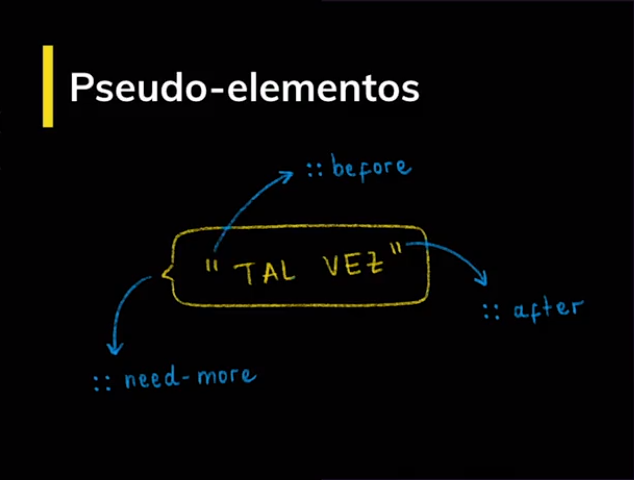 Pseudo-elementos
:: before
" TAL VEZ "
:: after
:: need-more